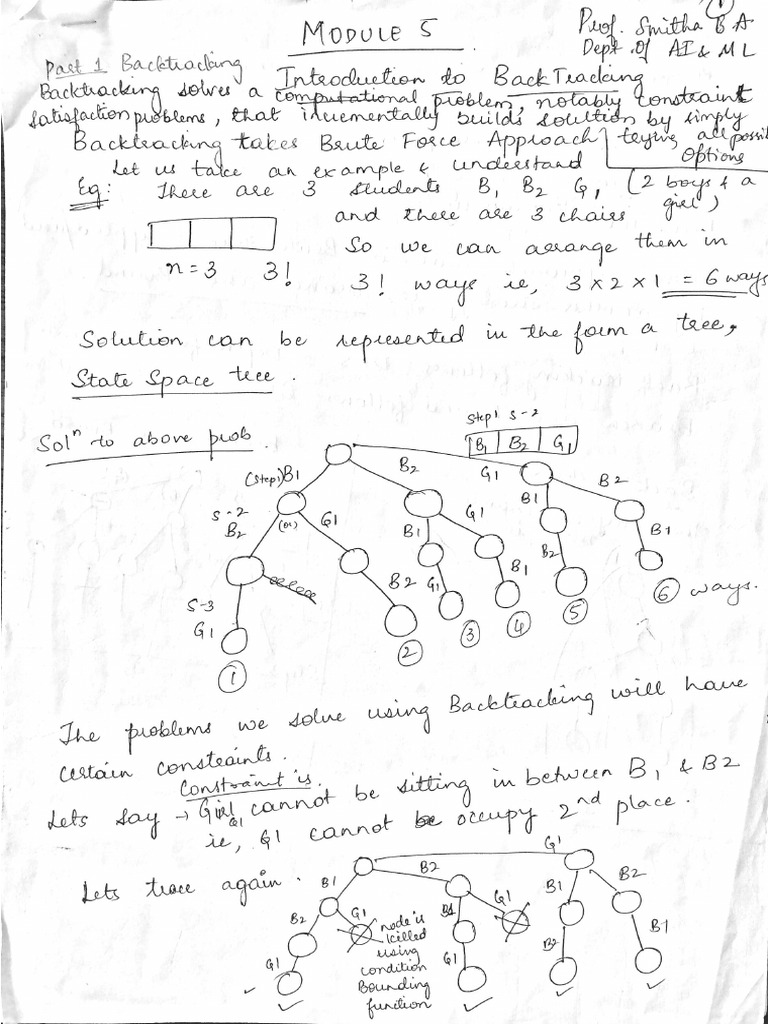 1
MODULE 5
Prof. Smitha B A
Dept. Of AI & ML
Part 1 Backtracking
Introduction to BackTracking
Backtracking solves a computational problem, notably constraint
satisfaction problems, that incrementally builds solution by simply
trying all possi
Options
Backtracking takes Brute Force Approach
Let us take an example & understand
Eg: There are 3 students B1 B2 G1 (2 boys & a
girl)
and there are 3 chairs
So we can arrange them in
n = 3 3!
3! ways ie, 3 x 2 x 1 = 6 ways
Solution can be represented in the form a tree,
State Space tree.
Step1 S-2
B1 B2 G1
Soln to above prob.
(Step1) B1 B2 G1 B2
S-2 B2 (or) G1 B1 G1 B1 B1
S-3 G1 B2 G1 B1 B2
1 2 3 4 5 6 ways.
The problems we solve using Backtracking will have
certain constraints.
Constraint is.
Lets say → Girl cannot be sitting in between B1 & B2
G1
ie, G1 cannot be occupy 2nd place.
Lets trace again.
B1 B2 G1
B2 G1 B1 G1 B1 B2
G1 G1 B2 B1
node is
killed
using
condition
Bounding
function